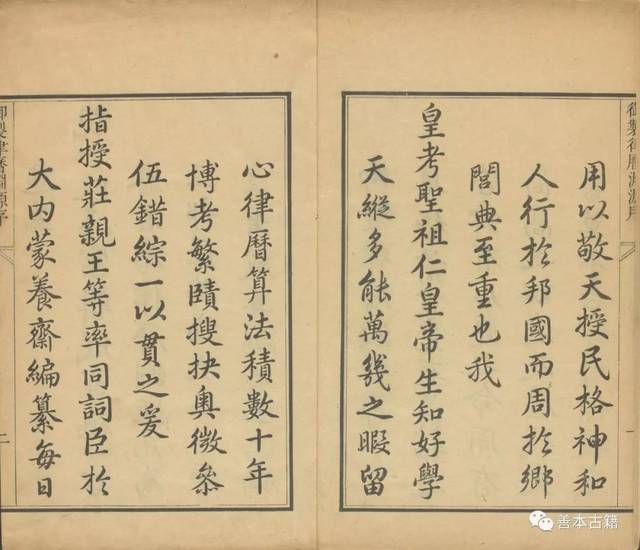 御製律曆淵源序
用以敬天授民格神和
人行於邦國而周於鄉
閭典至重也我
皇考聖祖仁皇帝生知好學
天縱多能萬幾之暇留
一
心律曆算法積數十年
博考繁賾搜抉奧微參
伍錯綜一以貫之爰
指授莊親王等率同詞臣於
大內蒙養齋編纂每日
御製律曆淵源序
二
善本古籍